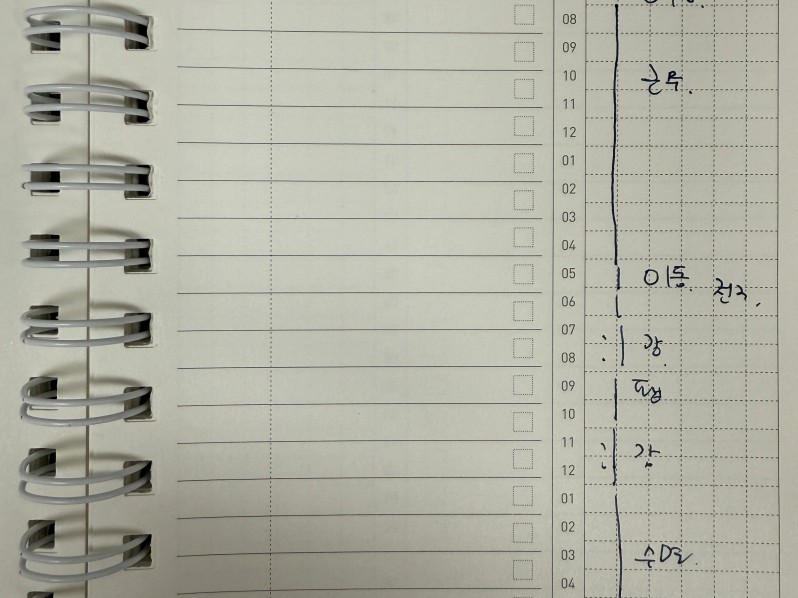 08
09
10 근무.
11
12
01
02
03
04
05 이동. 전주.
06
07
08 강.
09
10
11 강.
12
01
02
03 수면
04